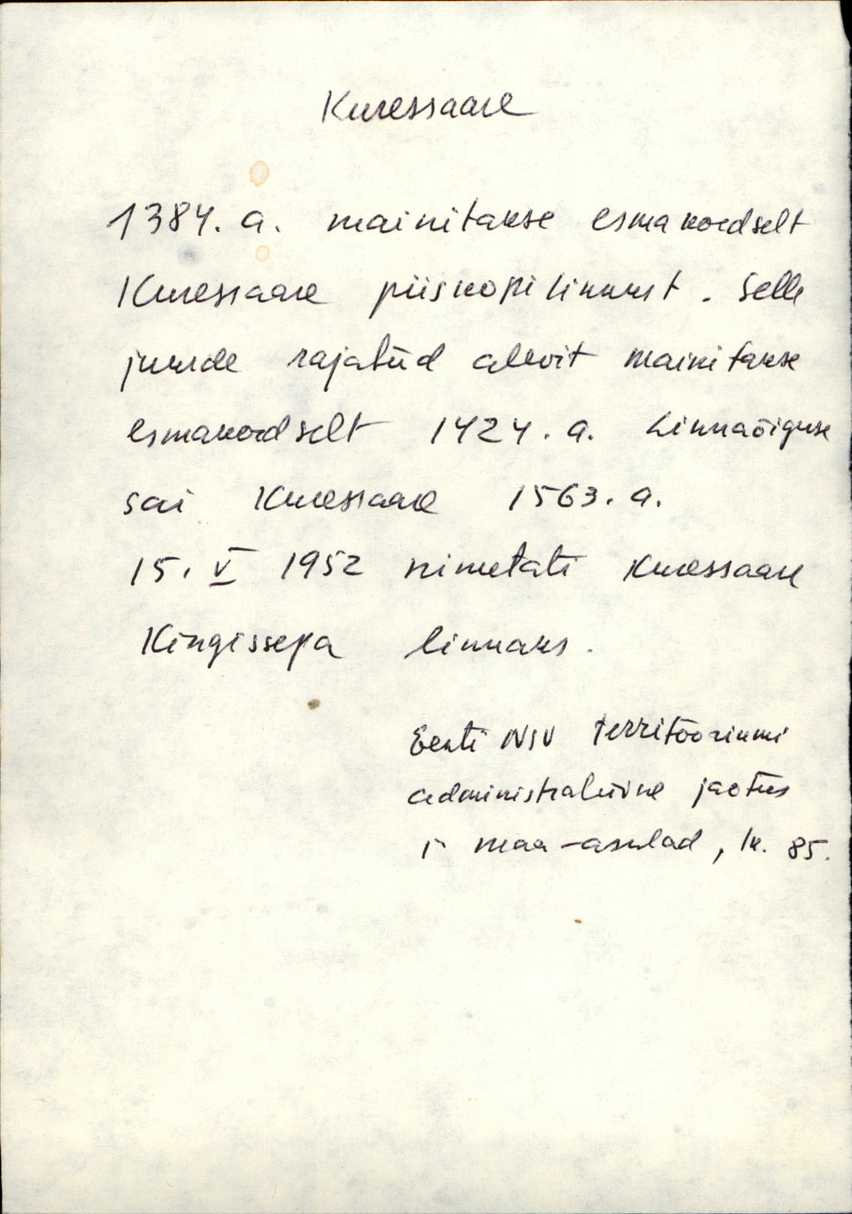 Kuressaare
1384. a. mainitakse esmakordselt
Kuressaare piiskopilinnust. Selle
juurde rajatud alevit mainitakse
esmakordselt 1424. a. Linnaõiguse
sai Kuressaare 1563. a.
15. V 1952 nimetati Kuressaare
Kingissepa linnaks.
Eesti NSV territooriumi
administratiivne jaotus
maa-asulad, lk. 85.